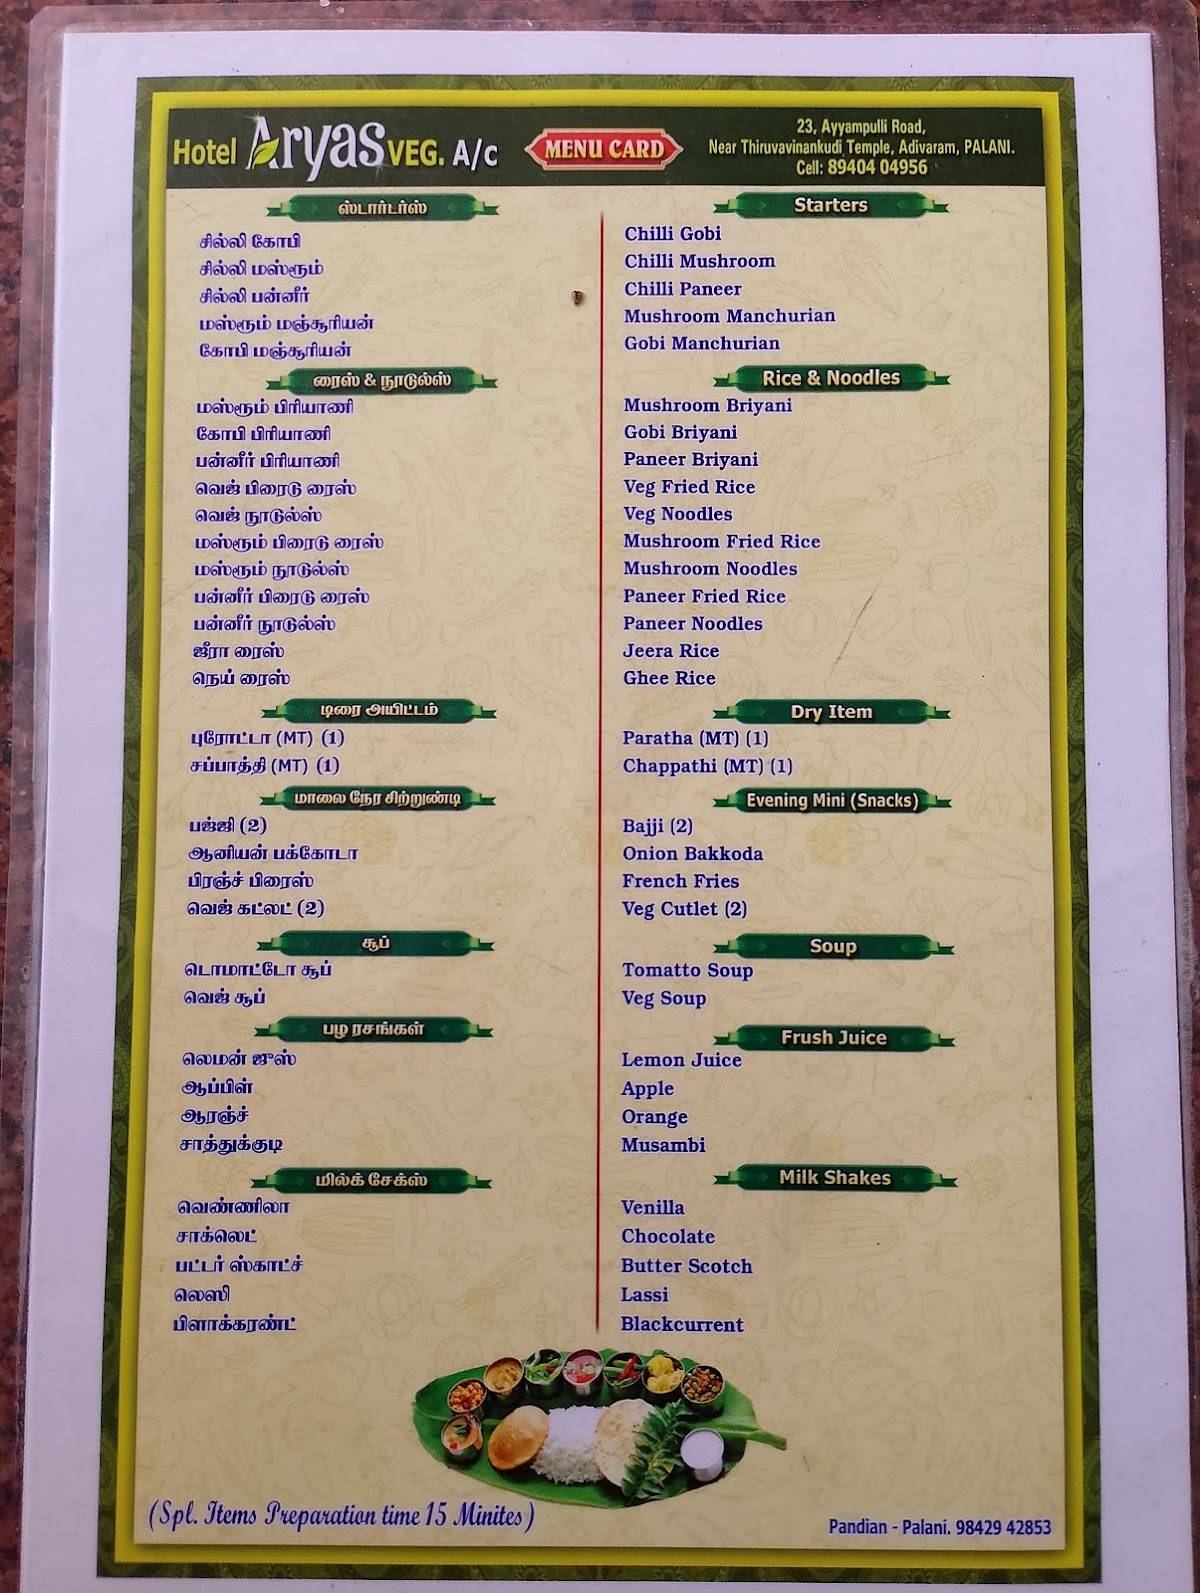 Hotel Aryas VEG. A/c
MENU CARD
23, Ayyampulli Road,
Near Thiruvavinankudi Temple, Adivaram, PALANI.
Cell: 89404 04956
ஸ்டார்டர்ஸ்
சில்லி கோபி
சில்லி மஸ்ரூம்
சில்லி பன்னீர்
மஸ்ரூம் மஞ்சூரியன்
கோபி மஞ்சூரியன்
ரைஸ் & நூடுல்ஸ்
மஸ்ரூம் பிரியாணி
கோபி பிரியாணி
பன்னீர் பிரியாணி
வெஜ் பிரைடு ரைஸ்
வெஜ் நூடுல்ஸ்
மஸ்ரூம் பிரைடு ரைஸ்
மஸ்ரூம் நூடுல்ஸ்
பன்னீர் பிரைடு ரைஸ்
பன்னீர் நூடுல்ஸ்
ஜீரா ரைஸ்
நெய் ரைஸ்
டிரை அயிட்டம்
புரோட்டா (MT) (1)
சப்பாத்தி (MT) (1)
மாலை நேர சிற்றுண்டி
பஜ்ஜி (2)
ஆனியன் பக்கோடா
பிரஞ்ச் பிரைஸ்
வெஜ் கட்லட் (2)
சூப்
டொமாட்டோ சூப்
வெஜ் சூப்
பழ ரசங்கள்
லெமன் ஜுஸ்
ஆப்பிள்
ஆரஞ்ச்
சாத்துக்குடி
மில்க் சேக்ஸ்
வெண்ணிலா
சாக்லெட்
பட்டர் ஸ்காட்ச்
லெஸி
பிளாக்கரண்ட்
Starters
Chilli Gobi
Chilli Mushroom
Chilli Paneer
Mushroom Manchurian
Gobi Manchurian
Rice & Noodles
Mushroom Briyani
Gobi Briyani
Paneer Briyani
Veg Fried Rice
Veg Noodles
Mushroom Fried Rice
Mushroom Noodles
Paneer Fried Rice
Paneer Noodles
Jeera Rice
Ghee Rice
Dry Item
Paratha (MT) (1)
Chappathi (MT) (1)
Evening Mini (Snacks)
Bajji (2)
Onion Bakkoda
French Fries
Veg Cutlet (2)
Soup
Tomatto Soup
Veg Soup
Frush Juice
Lemon Juice
Apple
Orange
Musambi
Milk Shakes
Venilla
Chocolate
Butter Scotch
Lassi
Blackcurrent
(Spl. Items Preparation time 15 Minites)
Pandian - Palani. 98429 42853